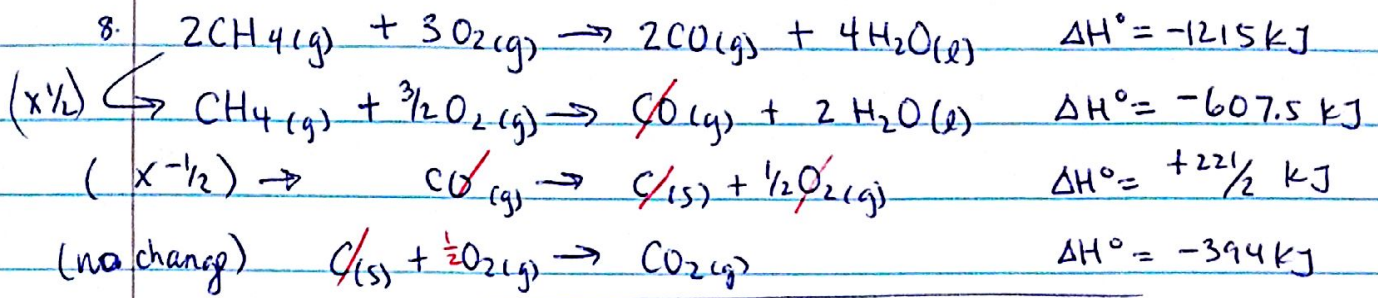 8. 2CH4(g) + 3O2(g) → 2CO(g) + 4H2O(l) ΔH° = -1215 kJ
(x½) CH4(g) + 3/2 O2(g) → CO(g) + 2 H2O(l) ΔH° = -607.5 kJ
(x-½) → CO(g) → C(s) + ½O2(g) ΔH° = +221/2 kJ
(no change) C(s) + ½O2(g) → CO2(g) ΔH° = -394 kJ